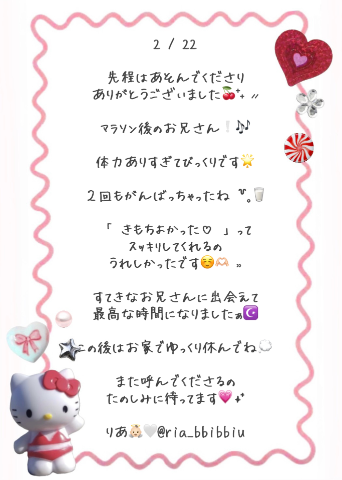 2 / 22
先程はあそんでくださり
ありがとうございました🍒⁺˖ 〃
マラソン後のお兄さん❕🎶
体力ありすぎてびっくりです🌟
2回もがんばっちゃったね ꒷꒦。🥛
「 きもちよかった♡ 」って
スッキリしてくれるの
うれしかったです☺️🫶🏻 〃
すてきなお兄さんに出会えて
最高な時間になりましたぁ☪️
この後はお家でゆっくり休んでね💭
また呼んでくださるの
たのしみに待ってます💗 ⁺˖
りあ👶🏻🤍@ria_bbibbiu